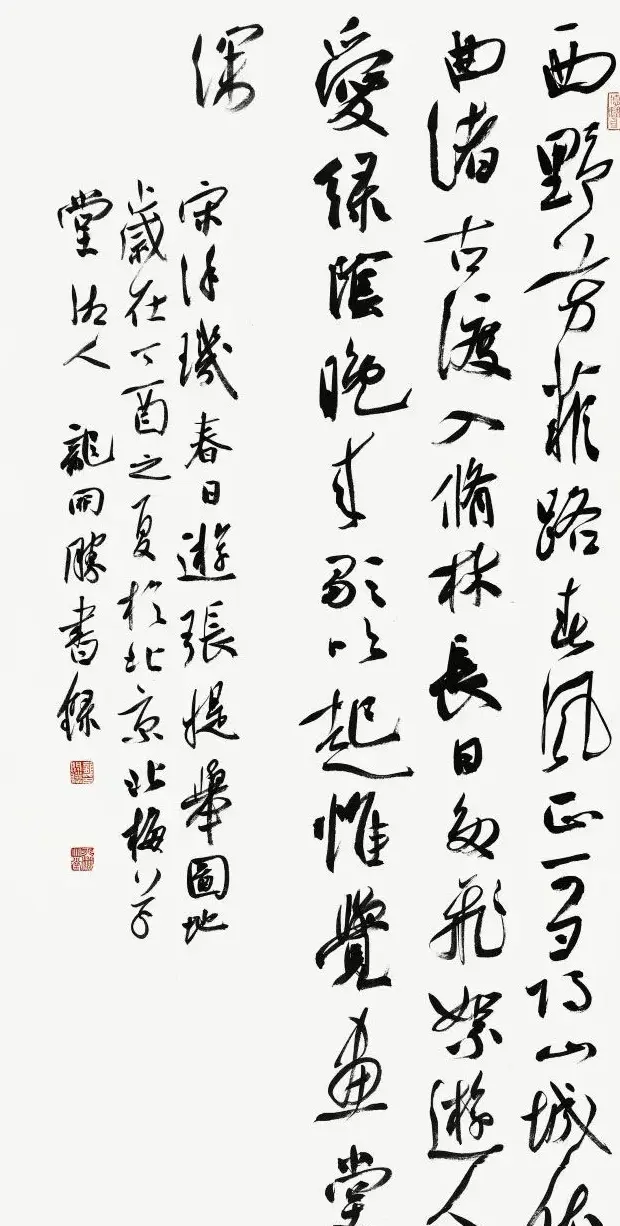 西野芳菲路春風正可尋山城依
曲渚古渡入脩林長日多飛絮遊人
愛綠陰晚來歌吹起惟覺畫堂
深
宋徐璣春日遊張提舉圖地
歲在丁酉之夏於北京北梅草
堂湖人龍開勝書錄